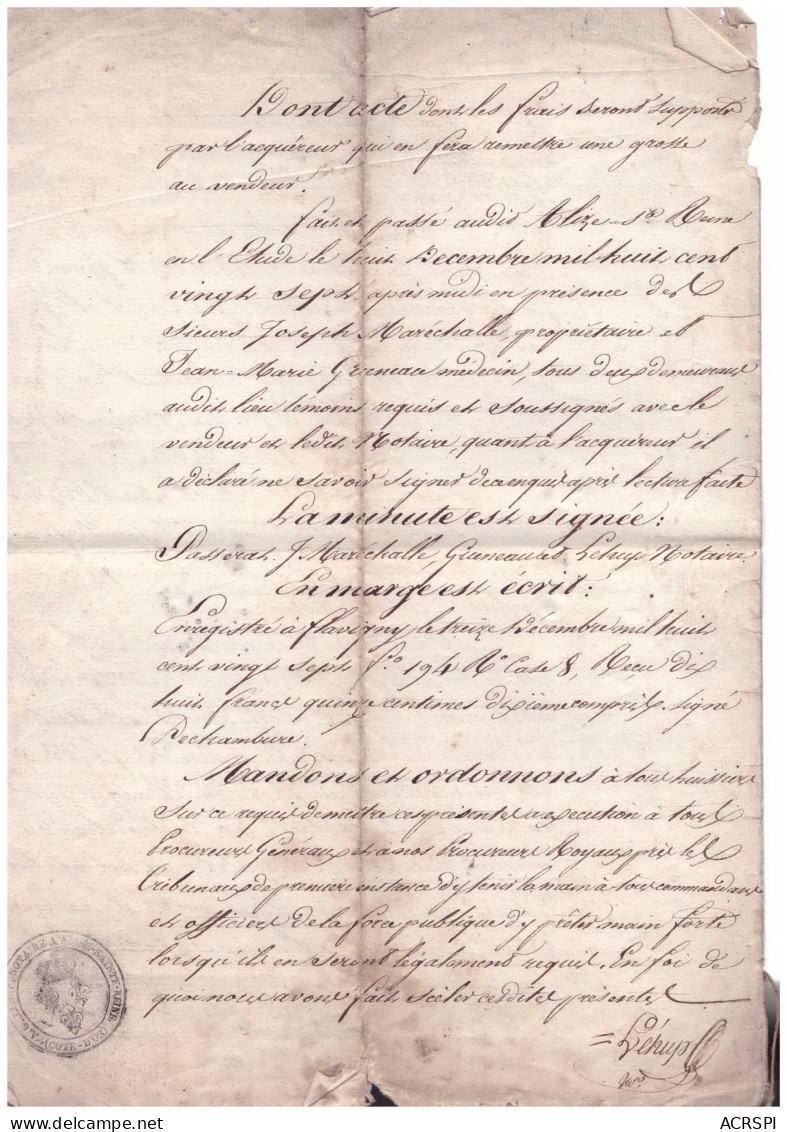 Dont acte dont les frais seront supportés
par l'acquéreur qui en fera remettre une grosse
au vendeur.
fait et passé audit Alize-Ste Reine
en l'Etude le huit Décembre mil huit cent
vingt sept, après midi en présence des
Sieurs Joseph Maréchalle, propriétaire et
Jean-Marie Grueneau médecin, tous deux demeurant
audit lieu témoins requis et soussignés avec le
vendeur et ledit Notaire, quant à l'acquéreur il
a déclaré ne savoir signer de ce enquis après lecture faite
La minute est signée:
Passerat, J Maréchalle, Grueneau et Léhup Notaire.
En marge est écrit:
Enregistré à flavigny, le treize Décembre mil huit
cent vingt sept fo. 194 Ro Case 8, Recu dix
huit francs quinze centimes dixième compris, signé
Dechambure.
Mandons et ordonnons à tous huissiers
sur ce requis de mettre ces présentes à execution à tous
Procureurs Généraux et à nos Procureurs Royaux près les
tribunaux de première instance d'y tenir la main à tous commandans
et officiers de la force publique d'y prêter main forte
lorsqu'ils en seront légalement requis. En foi de
quoi nous avons fait sceler cesdites présentes
= Léhup
NOTAIRE A SAINTE-REINE (COTE-D'OR)
ACRSPI